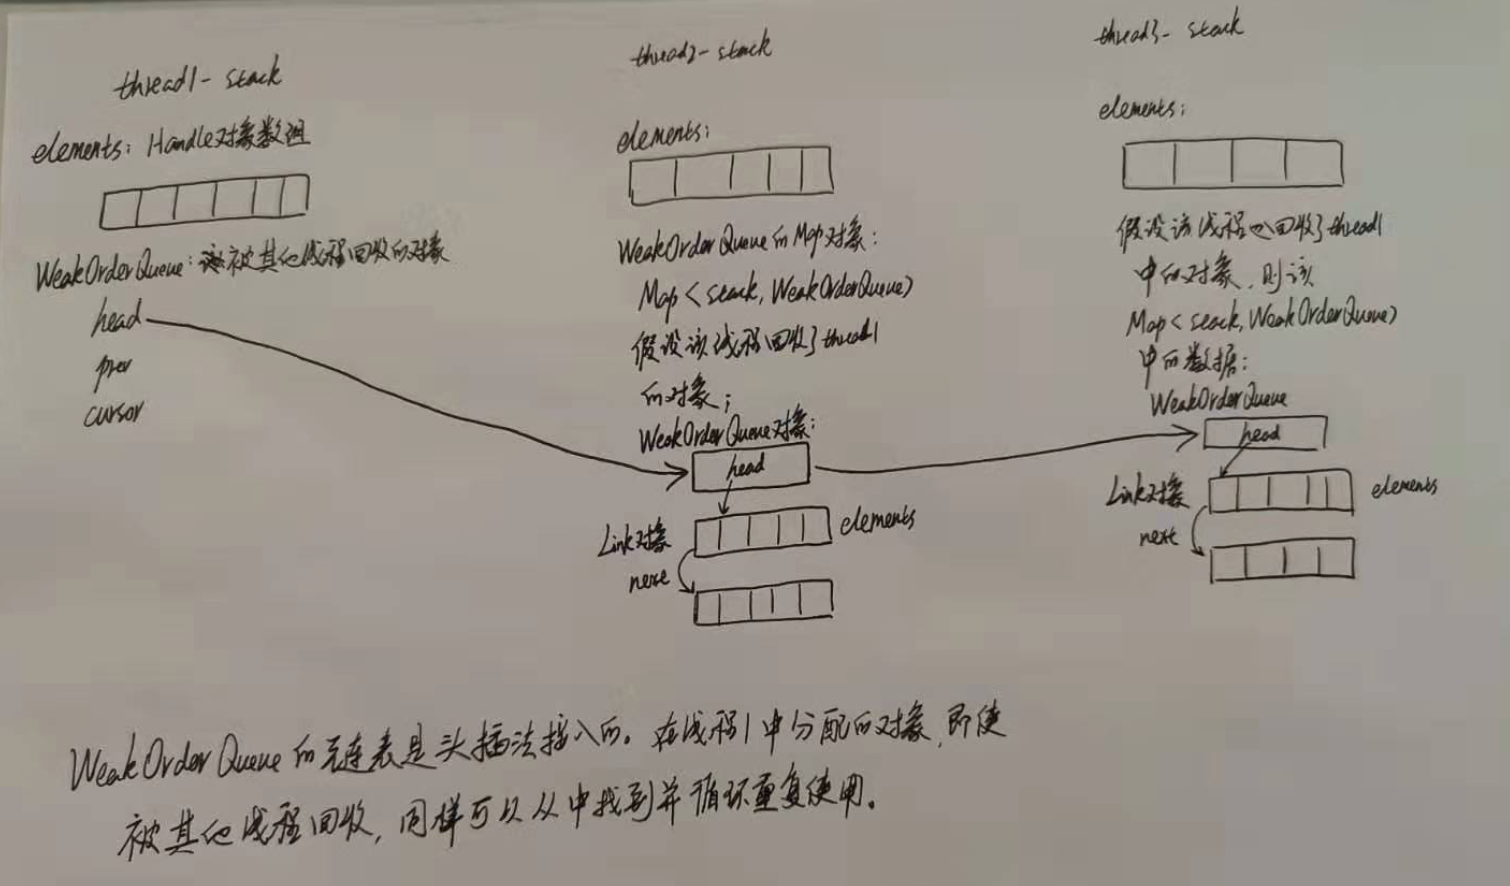 thread1- stack
elements: Handle对象数组
WeakOrderQueue: 被其他线程回收的对象
head
prev
cursor
thread2- stack
elements:
WeakOrderQueue的Map对象:
Map<stack, WeakOrderQueue>
假设该线程回收了thread1
的对象;
WeakOrderQueue对象:
head
Link对象
elements
next
thread3- stack
elements:
假设该线程也回收了thread1
中的对象,则该
Map<stack, WeakOrderQueue>
中的数据:
WeakOrderQueue
head
Link对象
elements
next
WeakOrderQueue的链表是头插法插入的。在线程1中分配的对象,即使
被其他线程回收,同样可以从中找到并循环重复使用。